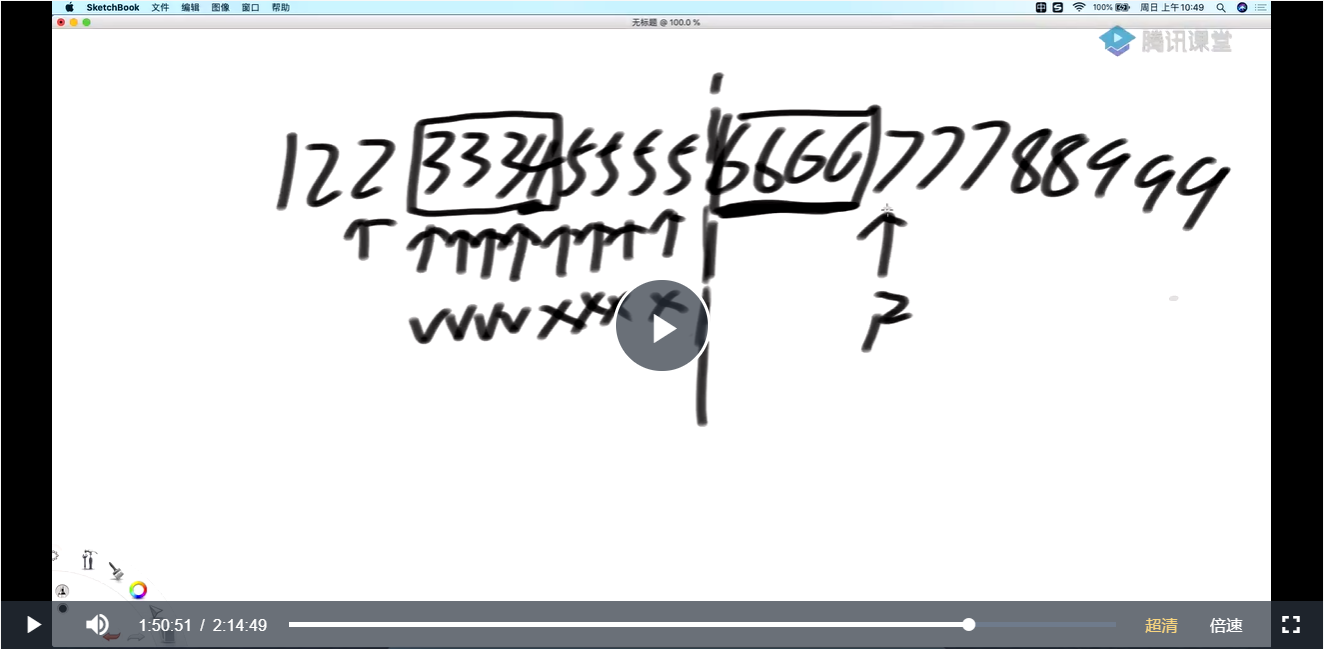 SketchBook 文件 编辑 图像 窗口 帮助 100% 周日 上午10:49
无标题 @ 100.0 %
腾讯课堂
122 33345555666677788999
P
1:50:51 / 2:14:49 超清 倍速